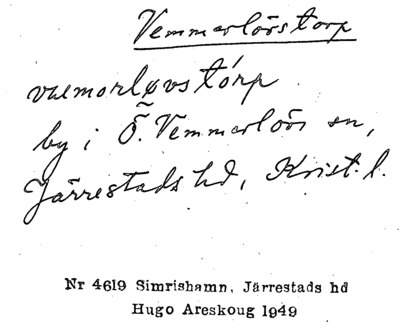 Vemmerlövstorp
væmorløvstórp
by i Ö. Vemmerlöv sn,
Järrestads hd, Krist. l.
Nr 4619 Simrishamn, Järrestads hd
Hugo Areskoug 1949